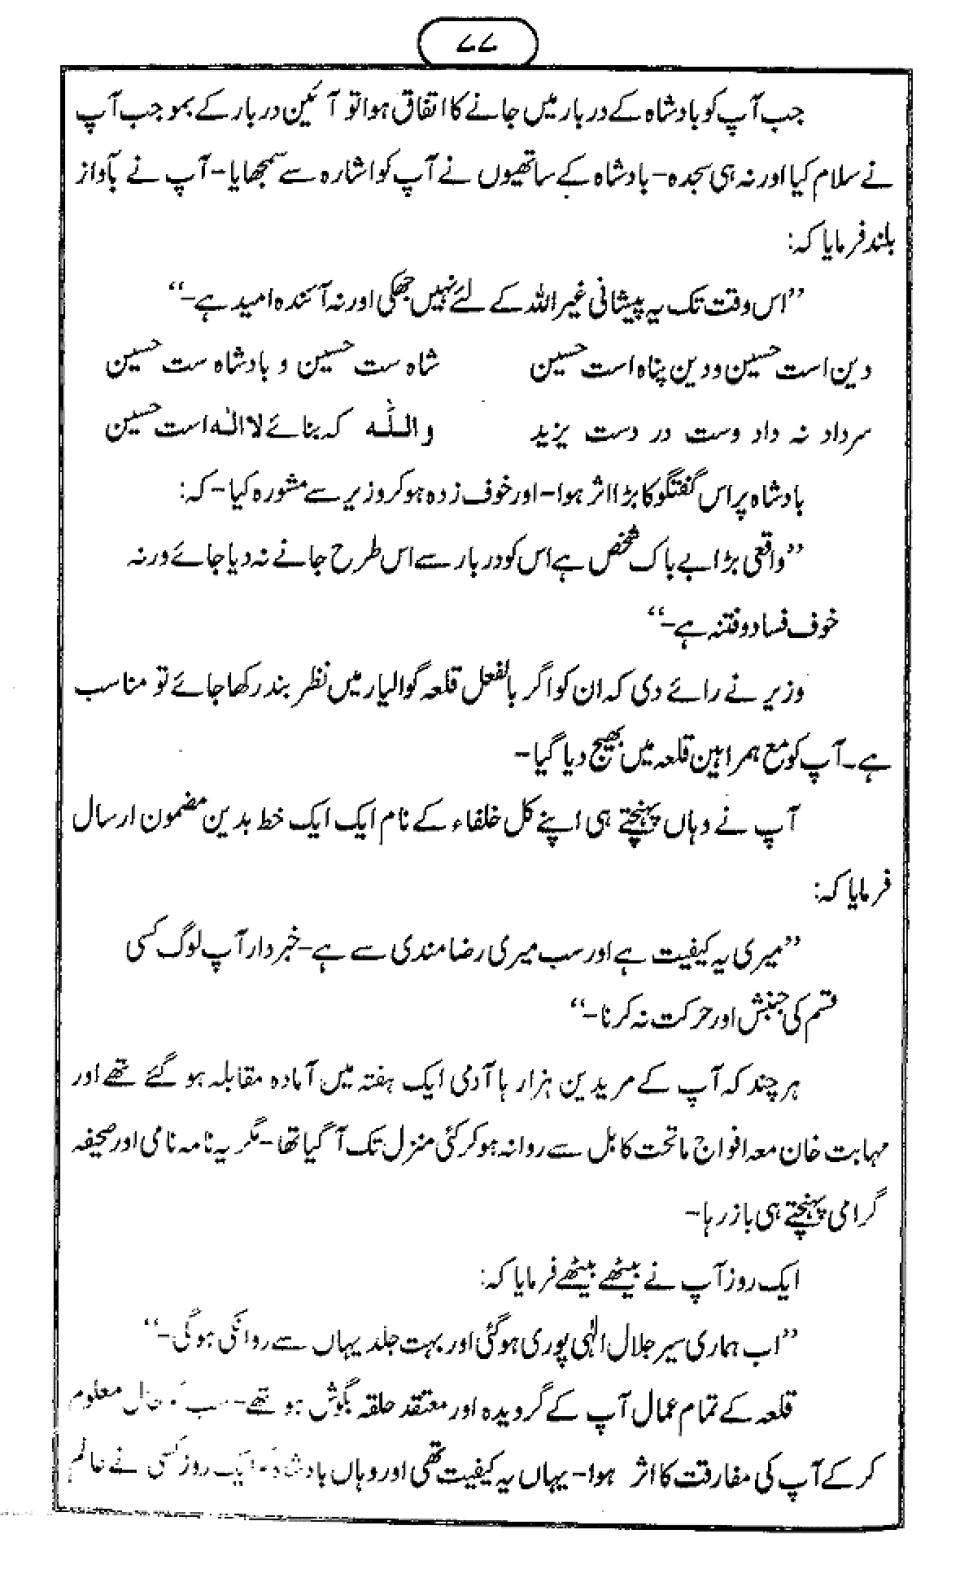 ۷۷
جب آپ کو بادشاہ کے دربار میں جانے کا اتفاق ہوا تو آئین دربار کے بموجب آپ
نے سلام کیا اور نہ ہی سجدہ۔ بادشاہ کے ساتھیوں نے آپ کو اشارہ سے سمجھایا۔ آپ نے بآواز
بلند فرمایا کہ:
”اس وقت تک یہ پیشانی غیر اللہ کے لئے نہیں جھکی اور نہ آئندہ امید ہے۔“
دین است حسین و دین پناہ است حسین شاہ ست حسین و بادشاہ ست حسین
سرداد نہ داد دست در دست یزید واللہ کہ بنائے لا الٰہ است حسین
بادشاہ پر اس گفتگو کا بڑا اثر ہوا۔ اور خوف زدہ ہو کر وزیر سے مشورہ کیا۔ کہ:
”واقعی بڑا بے باک شخص ہے اس کو دربار سے اس طرح جانے نہ دیا جائے ورنہ
خوف فساد و فتنہ ہے۔“
وزیر نے رائے دی کہ ان کو اگر بالفعل قلعہ گوالیار میں نظر بند رکھا جائے تو مناسب
ہے۔ آپ کو مع ہمراہین قلعہ میں بھیج دیا گیا۔
آپ نے وہاں پہنچتے ہی اپنے کل خلفاء کے نام ایک ایک خط بدین مضمون ارسال
فرمایا کہ:
”میری یہ کیفیت ہے اور سب میری رضا مندی سے ہے۔ خبردار آپ لوگ کسی
قسم کی جنبش اور حرکت نہ کرنا۔“
ہر چند کہ آپ کے مریدین ہزارہا آدمی ایک ہفتہ میں آمادہ مقابلہ ہو گئے تھے اور
مہابت خان معہ افواج ماتحت کابل سے روانہ ہو کر کئی منزل تک آ گیا تھا۔ مگر یہ نامہ نامی اور صحیفہ
گرامی پہنچتے ہی باز رہا۔
ایک روز آپ نے بیٹھے بیٹھے فرمایا کہ:
”اب ہماری سیر جلال الٰہی پوری ہو گئی اور بہت جلد یہاں سے روانگی ہو گی۔“
قلعہ کے تمام عمال آپ کے گرویدہ اور معتقد حلقہ بگوش ہو تھے۔ سب حال معلوم
کر کے آپ کی مفارقت کا اثر ہوا۔ یہاں یہ کیفیت تھی اور وہاں بادشاہ ایک روز کسی نے عالم